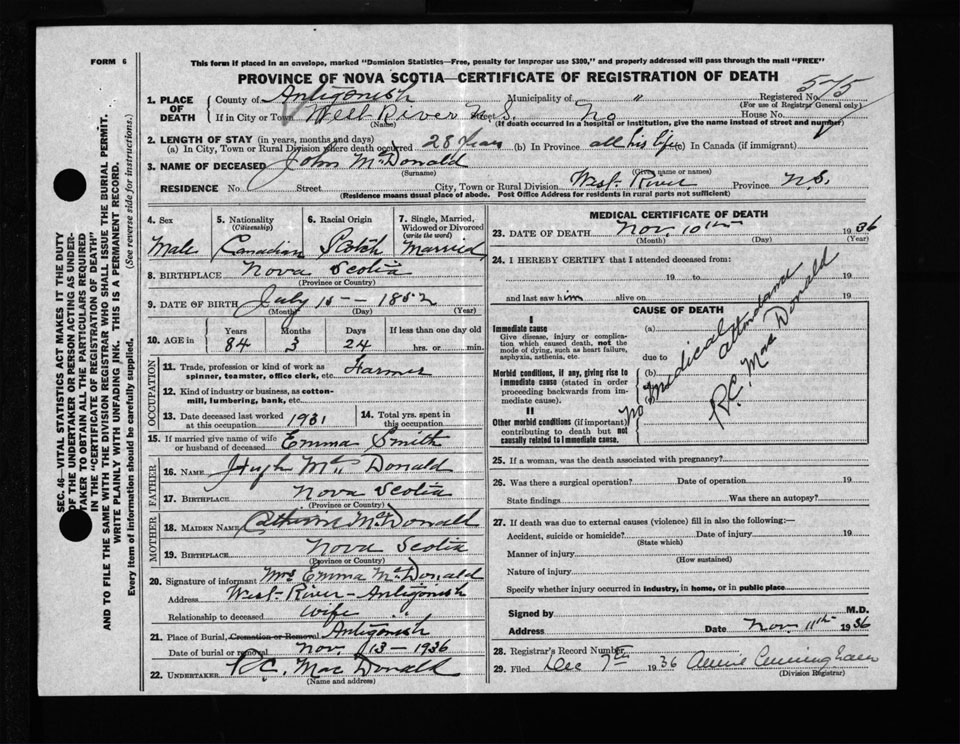 FORM 6
This form if placed in an envelope, marked "Dominion Statistics—Free, penalty for improper use $300," and properly addressed will pass through the mail "FREE"
PROVINCE OF NOVA SCOTIA—CERTIFICATE OF REGISTRATION OF DEATH
575
1. PLACE OF DEATH
County of Antigonish Municipality of " Registered No.
(For use of Registrar General only)
If in City or Town West River N.S. Street No House No.
(Name) (If death occurred in a hospital or institution, give the name instead of street and number)
2. LENGTH OF STAY (in years, months and days)
(a) In City, Town or Rural Division where death occurred 28 Years (b) In Province all his life (c) In Canada (if immigrant)
3. NAME OF DECEASED John McDonald
(Surname) (Given name or names)
RESIDENCE No. Street City, Town or Rural Division West River Province N.S.
(Residence means usual place of abode. Post Office Address for residents in rural parts not sufficient)
SEC. 46—VITAL STATISTICS ACT MAKES IT THE DUTY
OF THE UNDERTAKER OR PERSON ACTING AS UNDER-
TAKER TO OBTAIN ALL THE PARTICULARS REQUIRED
IN THE "CERTIFICATE OF REGISTRATION OF DEATH"
AND TO FILE THE SAME WITH THE DIVISION REGISTRAR WHO SHALL ISSUE THE BURIAL PERMIT.
WRITE PLAINLY WITH UNFADING INK. THIS IS A PERMANENT RECORD.
Every item of information should be carefully supplied. (See reverse side for instructions.)
4. Sex 5. Nationality (Citizenship) 6. Racial Origin 7. Single, Married, Widowed or Divorced (write the word)
Male Canadian Scotch Married
8. BIRTHPLACE Nova Scotia
(Province or Country)
9. DATE OF BIRTH July 15 — 1852
(Month) (Day) (Year)
10. AGE in Years Months Days If less than one day old
84 3 24 hrs. or min.
OCCUPATION
11. Trade, profession or kind of work as spinner, teamster, office clerk, etc. Farmer
12. Kind of industry or business, as cotton-mill, lumbering, bank, etc.
13. Date deceased last worked at this occupation 1931 14. Total yrs. spent in this occupation
15. If married give name of wife or husband of deceased Emma Smith
FATHER
16. NAME Hugh McDonald
17. BIRTHPLACE Nova Scotia
(Province or Country)
MOTHER
18. MAIDEN NAME Catherine McDonald
19. BIRTHPLACE Nova Scotia
(Province or Country)
20. Signature of informant Mrs Emma McDonald
Address West River - Antigonish
Relationship to deceased wife
21. Place of Burial, Cremation or Removal Antigonish
Date of burial or removal Nov. 13 - 1936
22. UNDERTAKER R.C. MacDonald
(Name and address)
MEDICAL CERTIFICATE OF DEATH
23. DATE OF DEATH Nov. 10th 1936
(Month) (Day) (Year)
24. I HEREBY CERTIFY that I attended deceased from:
19 to 19
and last saw him alive on 19
CAUSE OF DEATH
I
Immediate cause (a)
Give disease, injury or complication which caused death, not the mode of dying, such as heart failure, asphyxia, asthenia, etc.
due to
Morbid conditions, if any, giving rise to immediate cause (stated in order proceeding backwards from immediate cause). (b)
II
Other morbid conditions (if important) contributing to death but not causally related to immediate cause.
no medical attendance
R.C. MacDonald
25. If a woman, was the death associated with pregnancy?
26. Was there a surgical operation? Date of operation 19
State findings Was there an autopsy?
27. If death was due to external causes (violence) fill in also the following:—
Accident, suicide or homicide? Date of injury 19
(State which)
Manner of injury
(How sustained)
Nature of injury
Specify whether injury occurred in industry, in home, or in public place
Signed by M.D.
Address Date Nov. 11th 1936
28. Registrar's Record Number
29. Filed Dec 7th 1936 Annie Cunningham
(Division Registrar)